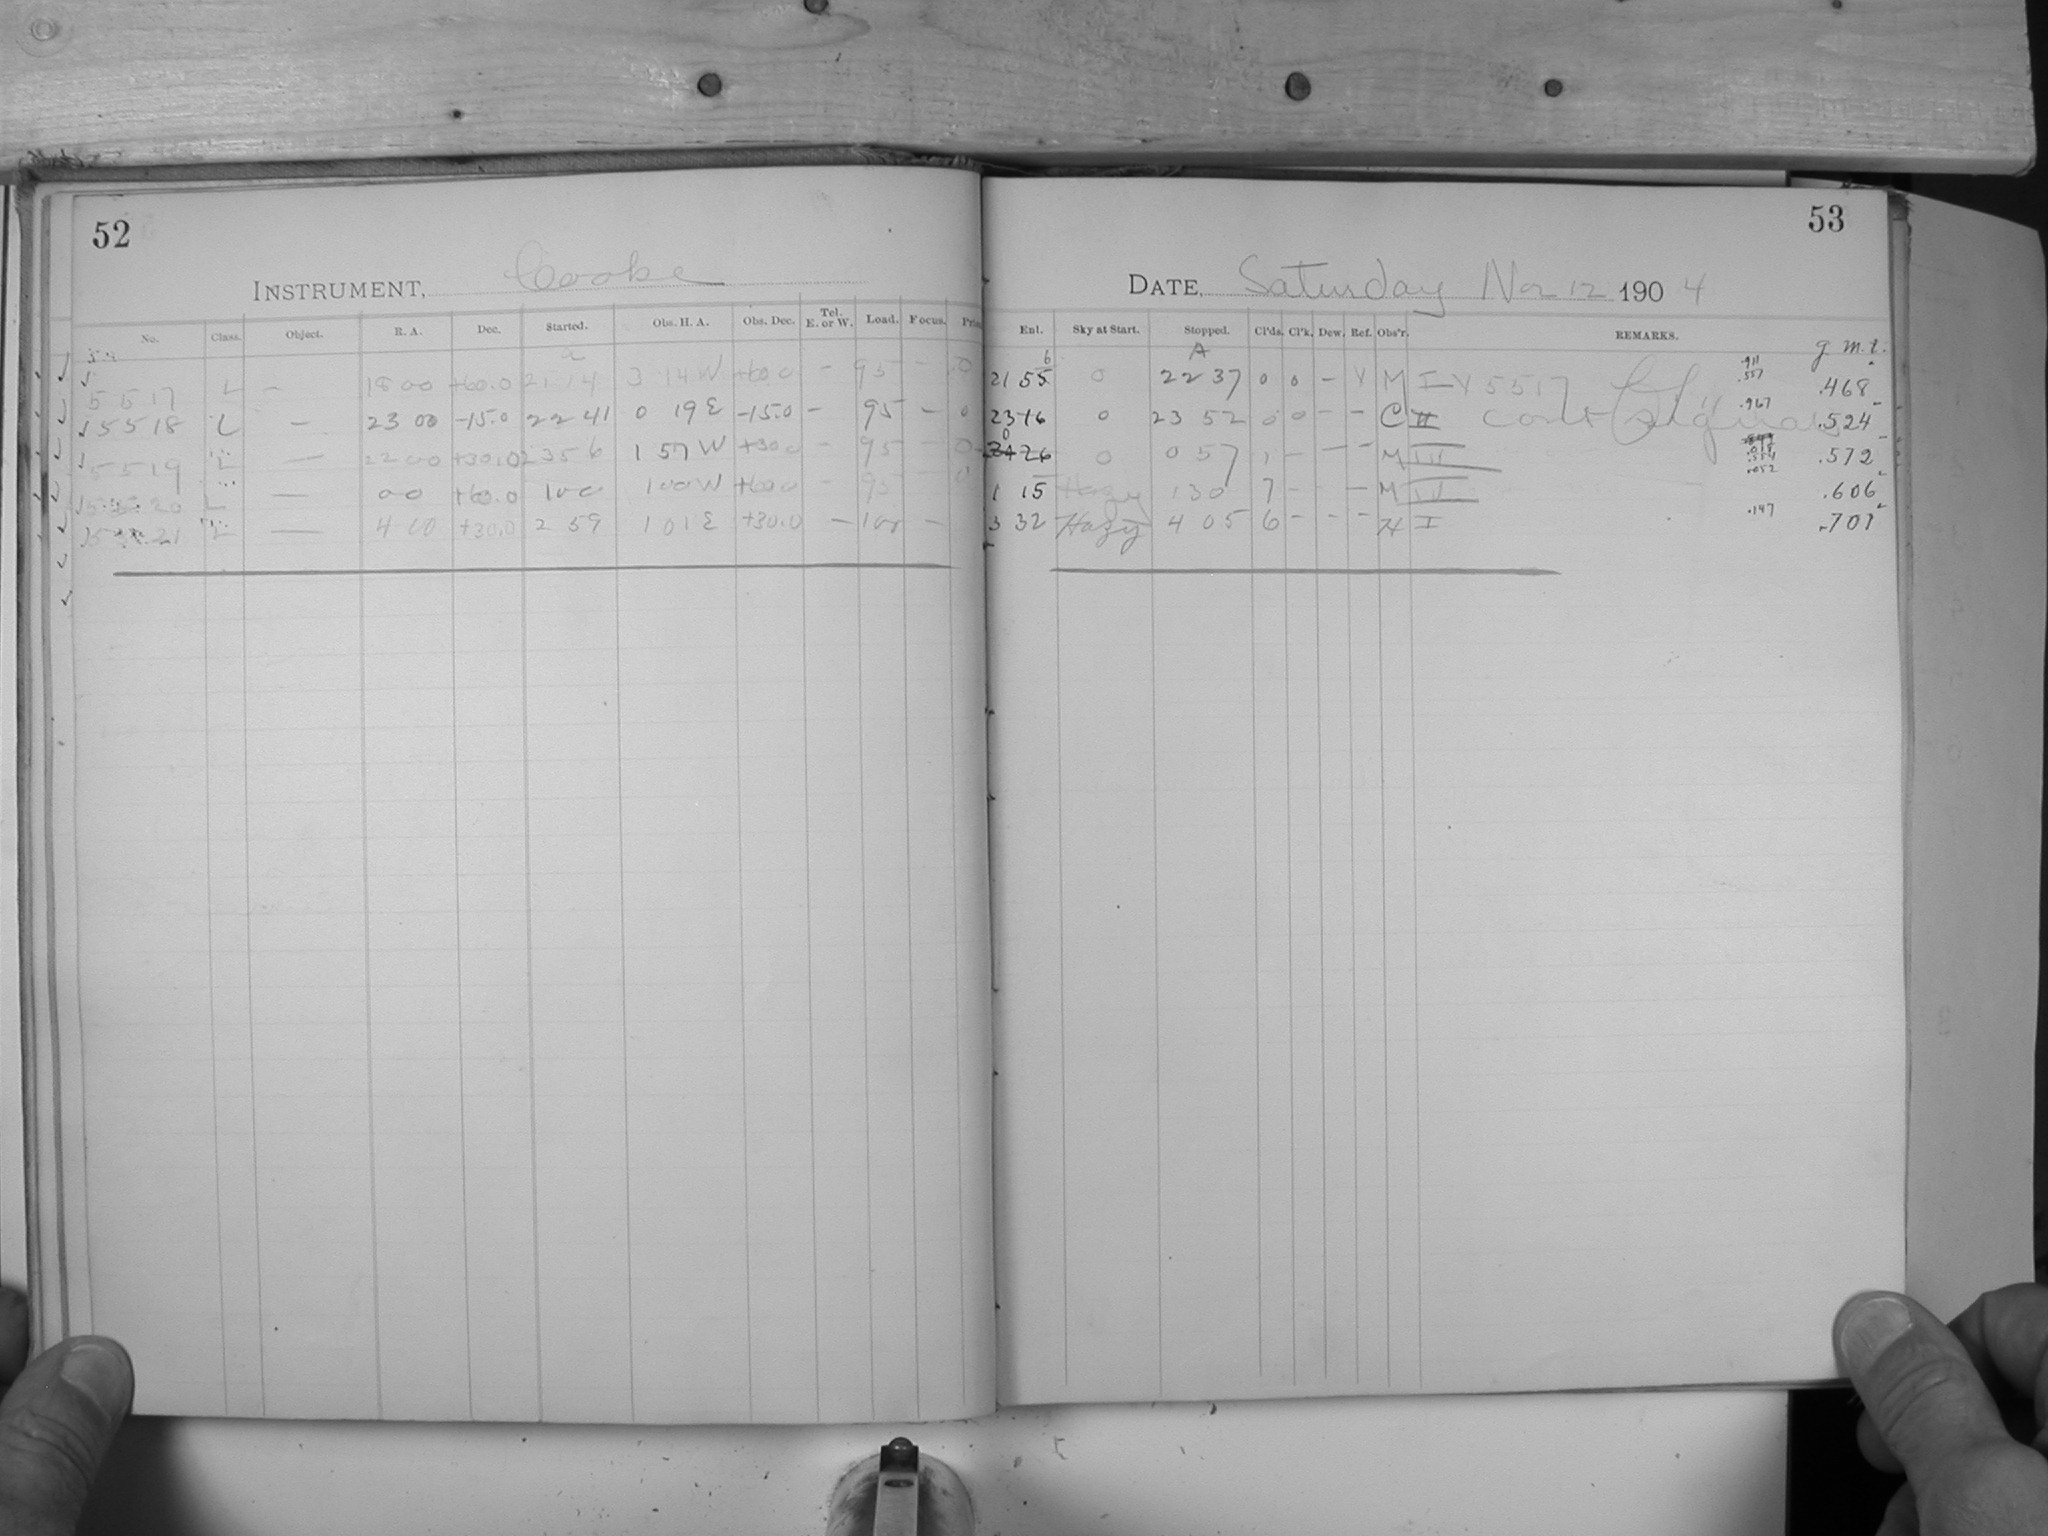 52
INSTRUMENT, Cooke
No. Class. Object. R. A. Dec. Started. Obs. H. A. Obs. Dec. Tel. E. or W. Load. Focus.
5517 L — 18 00 +60.0 21 14 3 14 W +60.0 - 95 - 0
5518 L — 23 00 -15.0 22 41 0 19 E -15.0 - 95 - 0
5519 L — 22 00 +30.0 23 56 1 57 W +30.0 - 95 - 0
20 L — 0 0 +60.0 1 00 1 00 W +60.0 - 95 - 0
21 L — 4 00 +30.0 2 59 1 01 E +30.0 - 100 -
53
DATE, Saturday Nov 12 1904
Ent. Sky at Start. Stopped. Cl'ds. Cl'k. Dew. Ref. Obs'r. REMARKS.
A g. m. t.
21 55 0 22 37 0 0 - Y M I Y 5517 .911 .557 .468
23 16 0 23 52 0 0 - - C II cont signal .967 .524
26 0 0 57 1 - - - M III .572
1 15 Hazy 1 30 7 - - - M III .052 .606
3 32 Hazy 4 05 6 - - - H I .147 .701